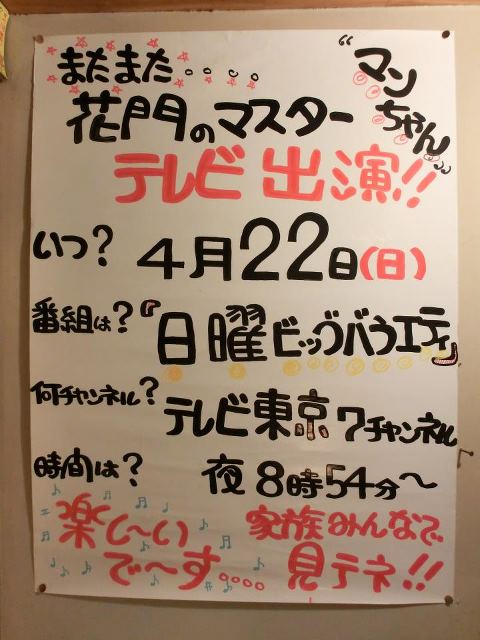 またまた....
"マンちゃん"
花門のマスター
テレビ出演!!
いつ? 4月22日(日)
番組は?『日曜ビッグバラエティ』
何チャンネル? テレビ東京7チャンネル
時間は? 夜8時54分〜
楽し〜いで〜す....
家族みんなで見テネ!!